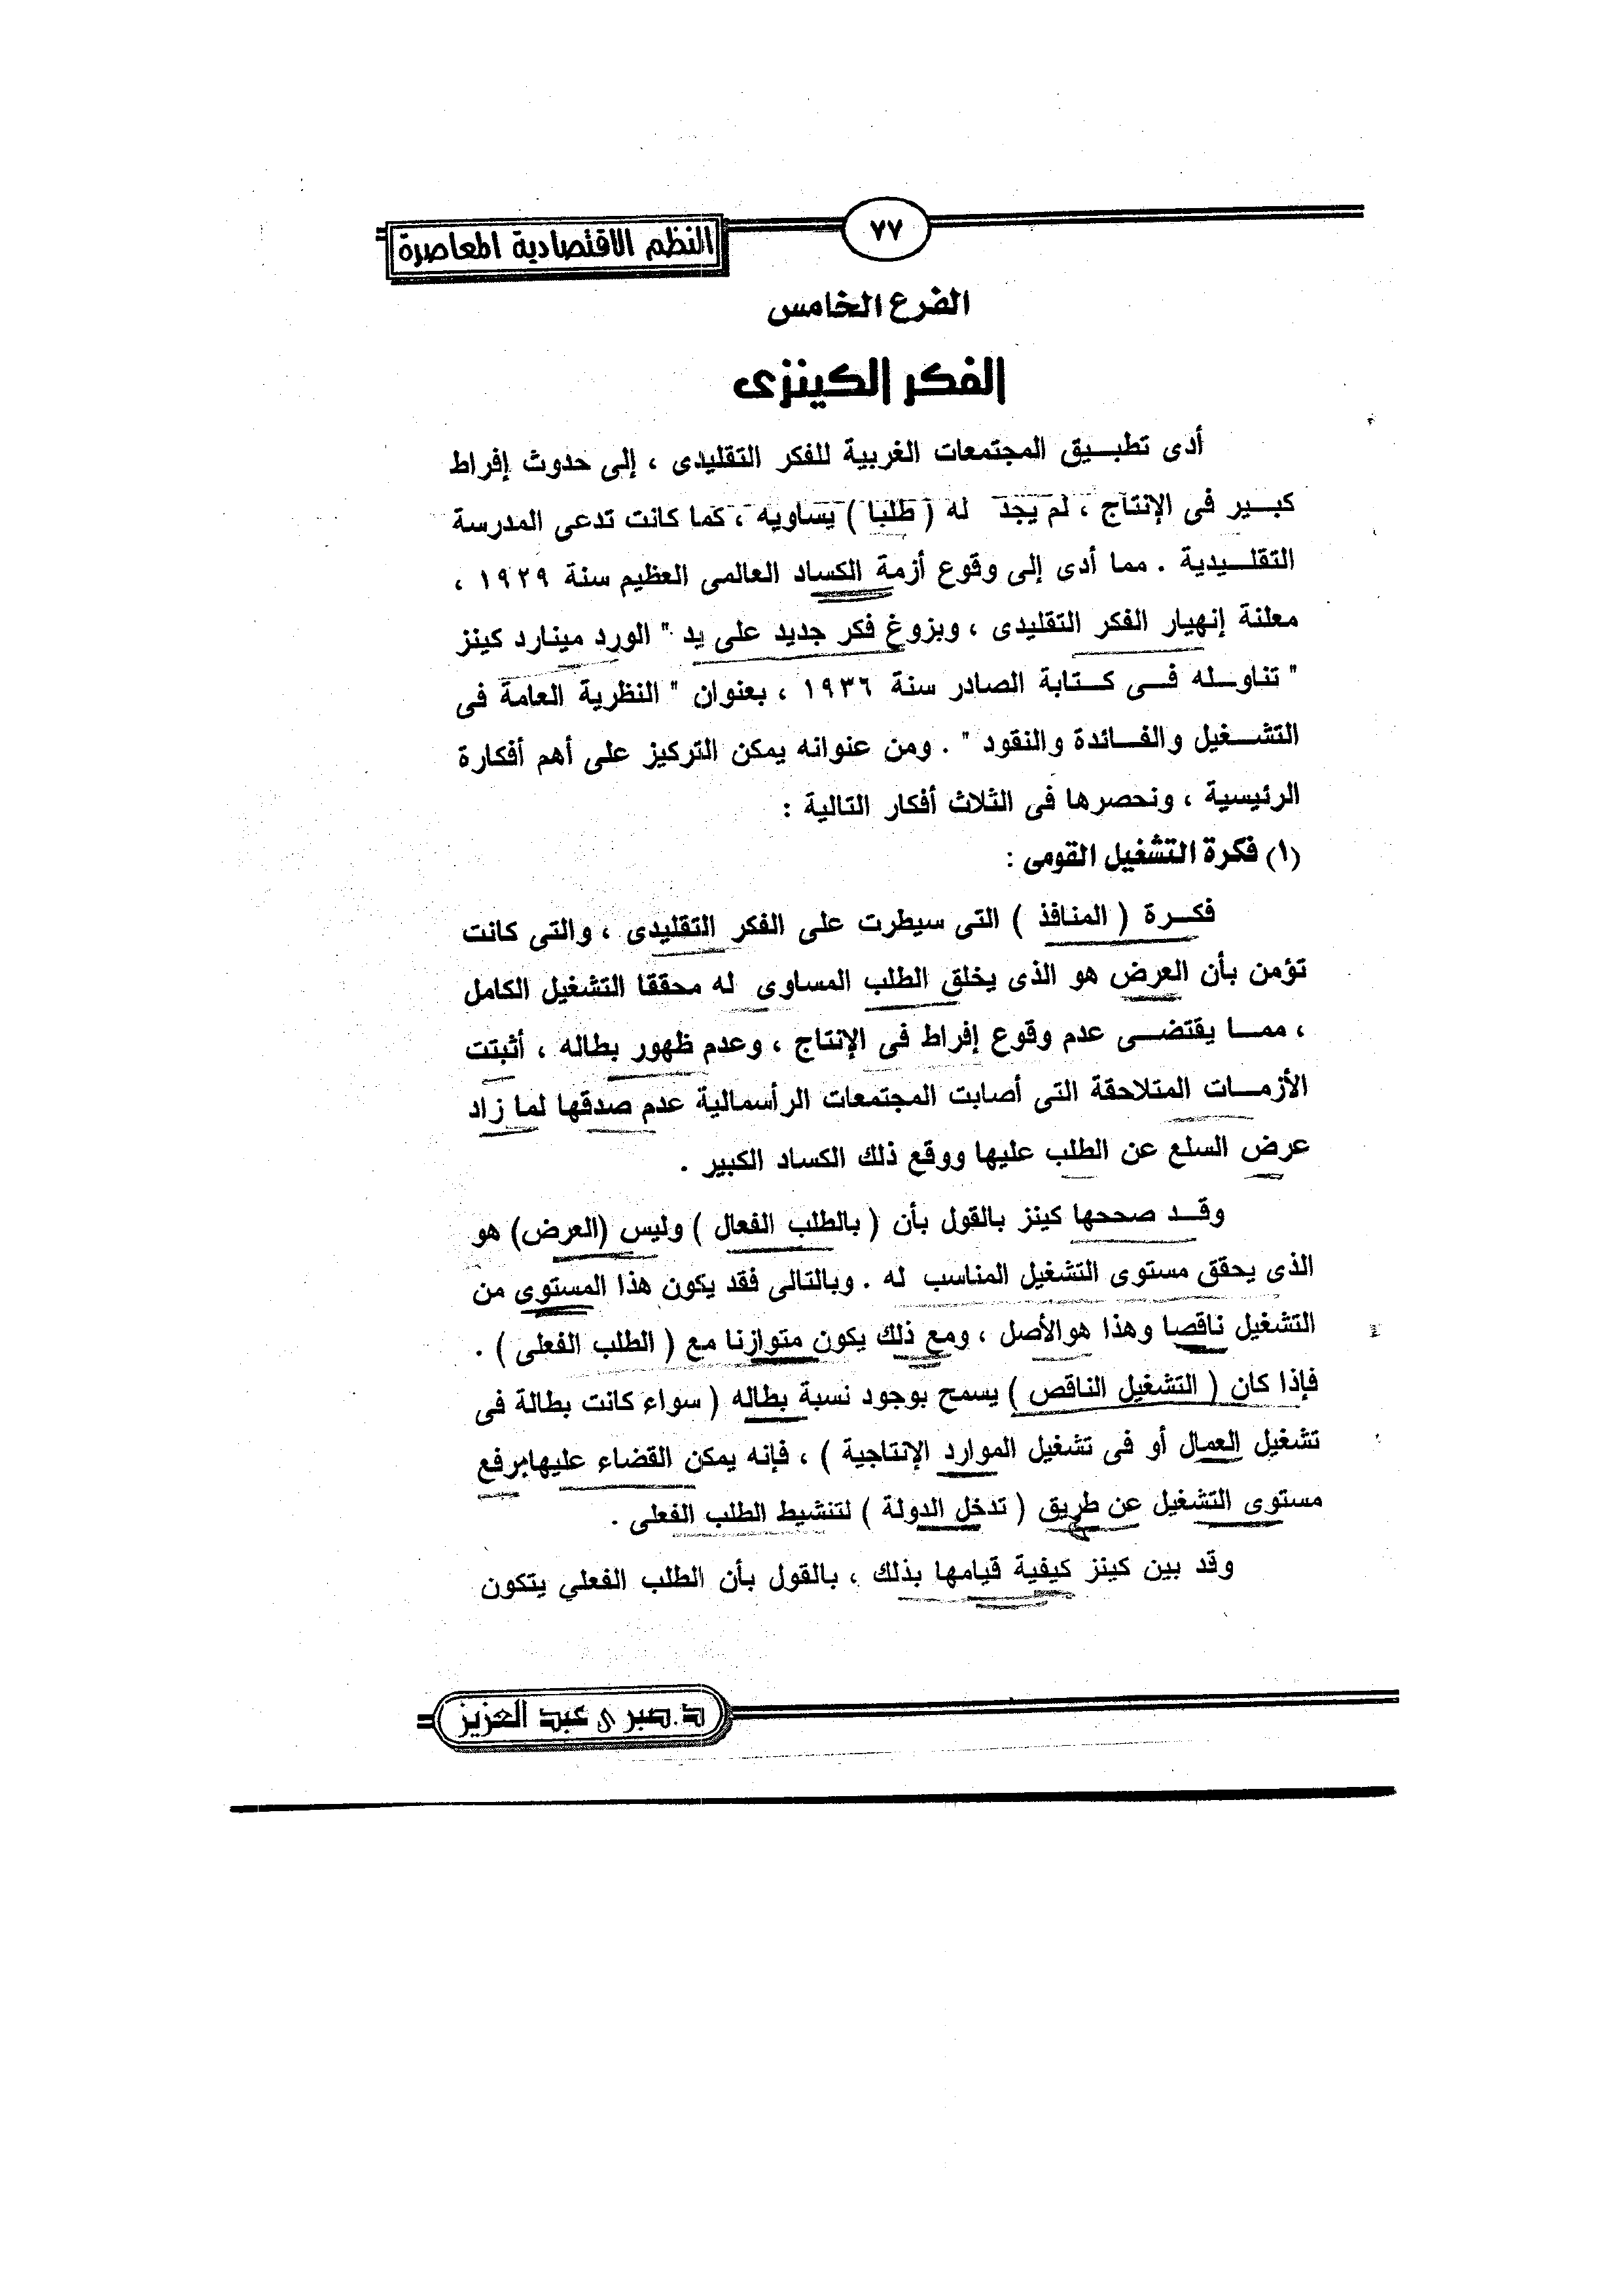 النظم الاقتصادية المعاصرة
٧٧
الفرع الخامس
الفكر الكينزى
أدى تطبيق المجتمعات الغربية للفكر التقليدى ، إلى حدوث إفراط
كبير فى الإنتاج ، لم يجد له ( طلبا ) يساويه ، كما كانت تدعى المدرسة
التقليدية . مما أدى إلى وقوع أزمة الكساد العالمى العظيم سنة ١٩٢٩ ،
معلنة إنهيار الفكر التقليدى ، وبزوغ فكر جديد على يد " الورد مينارد كينز
" تناوله فى كتابة الصادر سنة ١٩٣٦ ، بعنوان " النظرية العامة فى
التشغيل والفائدة والنقود " . ومن عنوانه يمكن التركيز على أهم أفكارة
الرئيسية ، ونحصرها فى الثلاث أفكار التالية :
(١) فكرة التشغيل القومى :
فكرة ( المنافذ ) التى سيطرت على الفكر التقليدى ، والتى كانت
تؤمن بأن العرض هو الذى يخلق الطلب المساوى له محققا التشغيل الكامل
، مما يقتضى عدم وقوع إفراط فى الإنتاج ، وعدم ظهور بطاله ، أثبتت
الأزمات المتلاحقة التى أصابت المجتمعات الرأسمالية عدم صدقها لما زاد
عرض السلع عن الطلب عليها ووقع ذلك الكساد الكبير .
وقد صححها كينز بالقول بأن ( بالطلب الفعال ) وليس (العرض) هو
الذى يحقق مستوى التشغيل المناسب له . وبالتالى فقد يكون هذا المستوى من
التشغيل ناقصا وهذا هوالأصل ، ومع ذلك يكون متوازنا مع ( الطلب الفعلى ) .
فإذا كان ( التشغيل الناقص ) يسمح بوجود نسبة بطاله ( سواء كانت بطالة فى
تشغيل العمال أو فى تشغيل الموارد الإنتاجية ) ، فإنه يمكن القضاء عليهابرفع
مستوى التشغيل عن طريق ( تدخل الدولة ) لتنشيط الطلب الفعلى .
وقد بين كينز كيفية قيامها بذلك ، بالقول بأن الطلب الفعلي يتكون
د.صبرى عبد العزيز